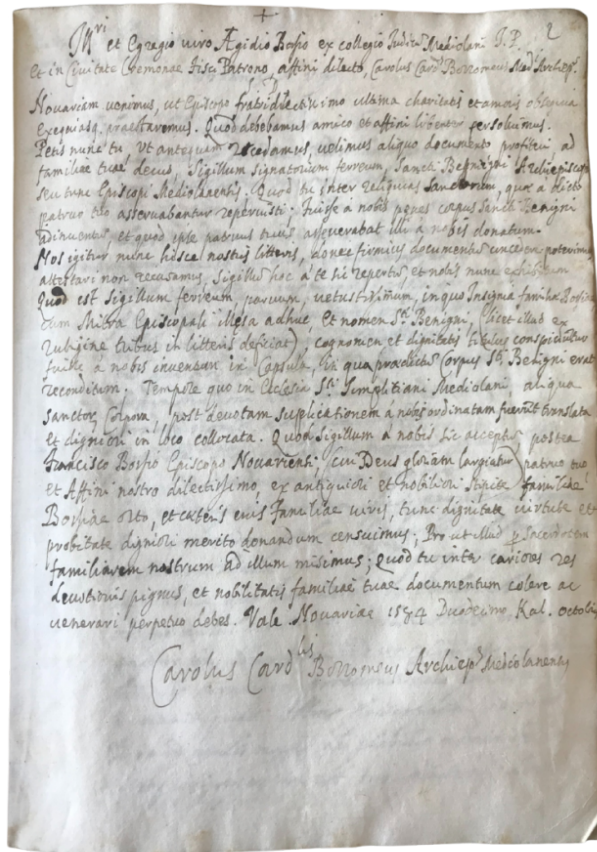 +
2
Ill.ri et Egregio viro Ægidio Bosio ex collegio Judic. Mediolani J. P.
et in Civitate Cremonae Fisci Patrono, affini dilecto, Carolus Card. Borromeus Med. Archiep.
Novariam venimus, ut Episcopo fratri dilectissimo ultima charitatis et amoris obsequia
exequiasq. praestaremus. Quod debebamus amico et affini libenter persolvimus.
Petis nunc tu, ut antequam recedamus, velimus aliquo documento profiteri ad
familiae tuae decus, Sigillum signatorium ferreum, Sancti Benigni Archiepiscopi
seu tunc Episcopi Mediolanensis. Quod tu inter Reliquias Sanctorum, quae a dicto
patruo tuo asservabantur reperuisti; fuisse a nobis penes corpus Sancti Benigni
adinventum, et quod ipse patruus tuus asseverabat illi a nobis donatum.
Nos igitur nunc hisce nostris litteris, donec firmius documentum concedere poterimus,
attestari non recusamus, Sigillum hoc a te sic repertum, et nobis nunc exhibitum
Quod est sigillum ferreum, parvum, vetustissimum, in quo Insignia familiae Bossiae
cum Mitra Episcopali illesa adhuc, et nomen S.ti Benigni, (licet illud ex
rubigine tribus in litteris deficiat) cognomen et dignitatis titulus conspiciuntur
fuisse a nobis inventum in Capsula, in qua praedictum Corpus S.ti Benigni erat
reconditum. Tempore quo in Ecclesia S.ti Simplitiani Mediolani, aliqua
Sanctor. Corpora, post devotam suplicationem a nobis ordinatam fuerunt translata
et digniori in loco collocata. Quod Sigillum a nobis sic acceptum postea
Francisco Bossio Episcopo Novariensi, (cui Deus gloriam largiatur) patruo tuo
et Affini nostro dilectissimo, ex antiquiori et nobiliori stirpe familiae
Bossiae orto, et caeteris eius Familiae viris, tunc dignitate virtute et
probitate digniori merito donandum censuimus; Pro ut illud p. sacerdotem
familiarem nostrum ad illum misimus; Quod tu inter cariores res
devotionis pignus, et nobilitatis familiae tuae documentum colere ac
venerari perpetuo debes. Vale Novariae 1584 Duodecimo Kal. octobris
Carolus Card.lis Borromeus Archiep. Mediolanensis